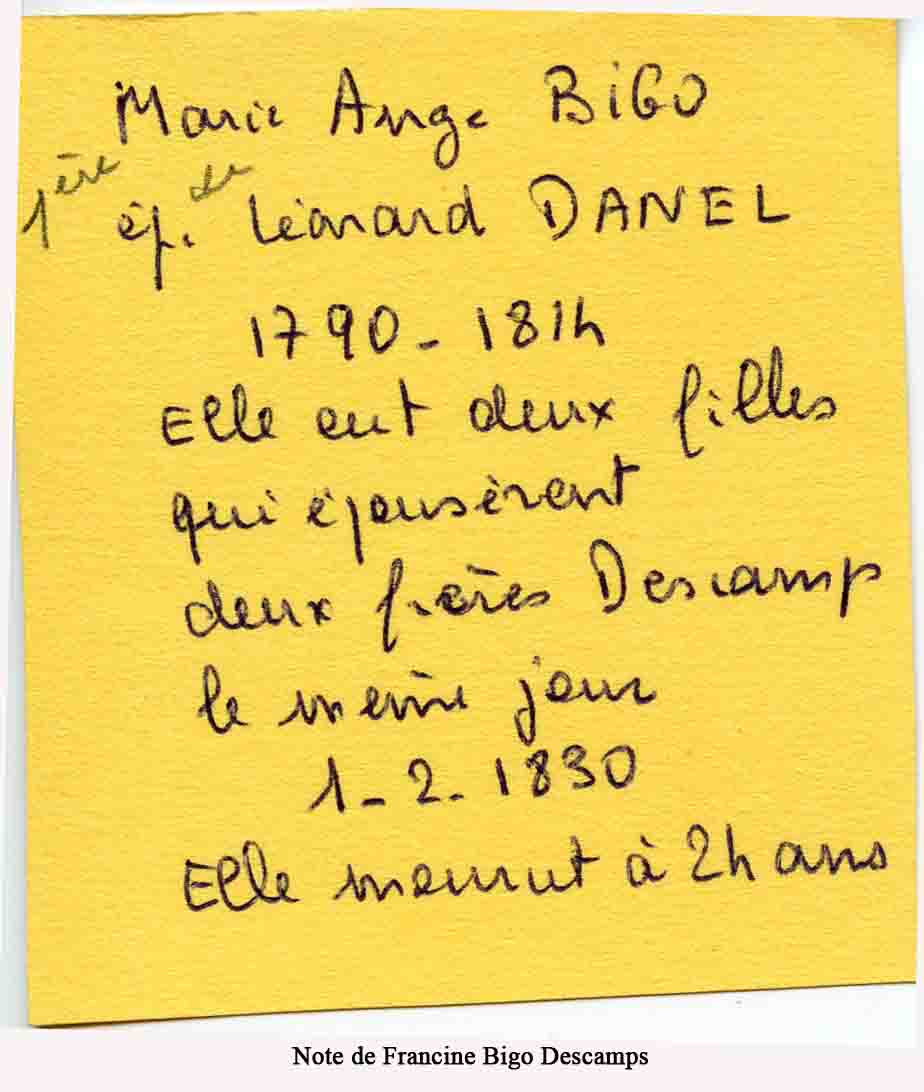 Marie Ange BIGO
1ère ép. de Léonard DANEL
1790 - 1814
Elle eut deux filles
qui épousèrent
deux frères Descamps
le même jour
1-2-1830
Elle mourut à 24 ans
Note de Francine Bigo Descamps